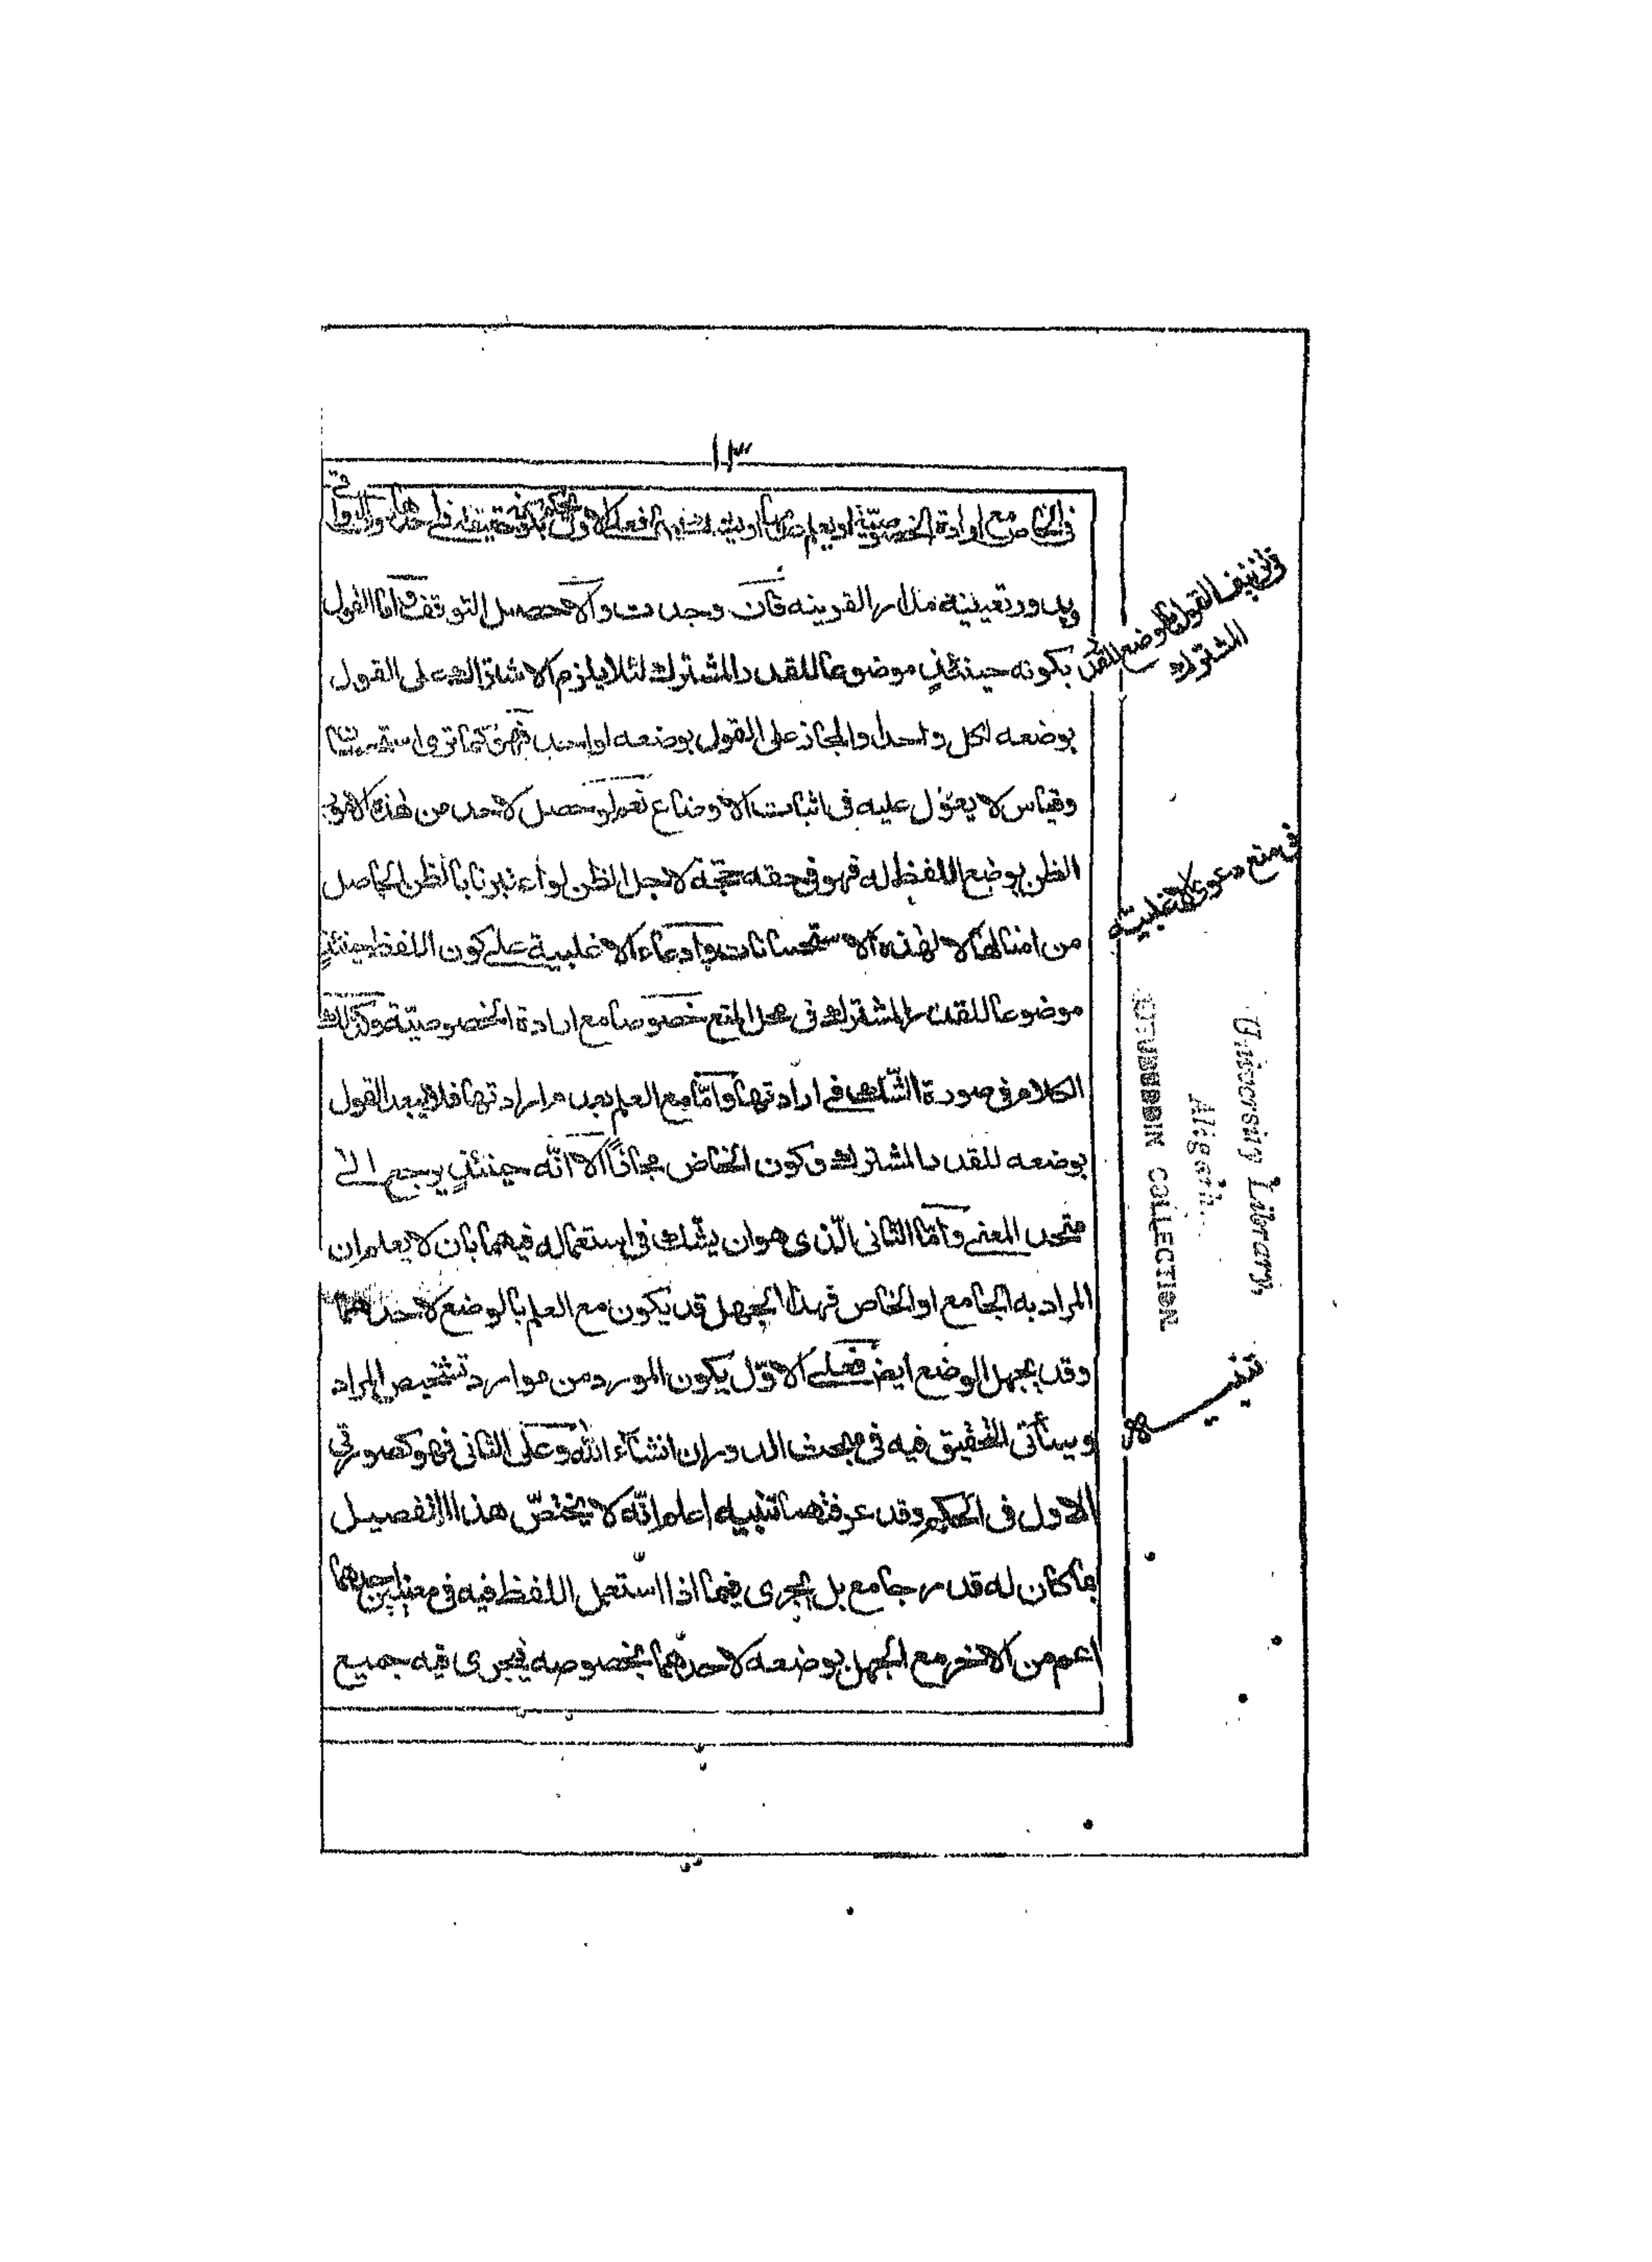 ١٣
في الخاص مع ارادة الخصوصية او يعلم فعلى الاول حقيقة في احدهما
ويدور تعيينه مدار القرينة فان وجدت والا حصل التوقف واما القول
بكونه حينئذٍ موضوعا للقدر المشترك لئلا يلزم الاشتراك على القول
بوضعه لكل واحد والمجاز على القول بوضعه لواحد فهو كما ترى
وقياس لا يعوّل عليه في اثبات الاوضاع نعم لو حصل لاحد من هذه الامور
الظن بوضع اللفظ له فهو في حقه حجّة لاجل الظن لو اعتبرنا بالظن الحاصل
من امثالها لا لهذه الاستحسانات وادعاء الاغلبية على كون اللفظ حينئذٍ
موضوعا للقدر المشترك في محل المنع خصوصا مع ارادة الخصوصيّة وكذلك
الكلام في صورة الشّك في ارادتها وامّا مع العلم بعدم ارادتها فلا يبعد القول
بوضعه للقدر المشترك وكون الخاص مجازاً الا انّه حينئذٍ يرجع الى
متحد المعنى وامّا الثاني الّذي هو ان يشّك في استعماله فيهما بان لا يعلم ان
المراد به الجامع او الخاص فهذا الجهل قد يكون مع العلم بالوضع لاحدهما
وقد يجهل الوضع ايضً فعلى الاوّل يكون المورد من موارد تشخيص المراد
وسيأتي التحقيق فيه في مبحث الدوران انشآء اللّه وعلى الثاني فهو كصورتي
الاول في الحكم وقد عرفتهما تنبيه اعلم انّه لا يختصّ هذا التفصيل
بما كان له قدر جامع بل يجري فيما اذا استعمل اللفظ فيه في معنيين احدهما
اعم من الاخر مع الجهل بوضعه لاحدهما بخصوصه فيجري فيه جميع
في تزييف القول بالوضع للقدر
المشترك
في منع دعوى الاغلبيّة
University Library,
Aligarh.
COLLECTION
تنبيه